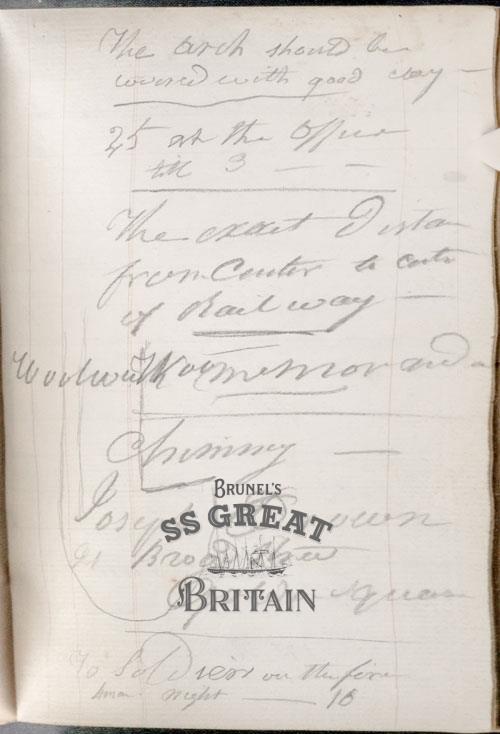 The arch should be
covered with good clay —
25 at the office
till 3 — —
The exact Distan
from Center to cent
of Railway —
Woolwich memorand
Chimney —
Joseph Brown
91 Broad Street
square
BRUNEL'S
SS GREAT
BRITAIN
To Soldiers on the fire
night — 16